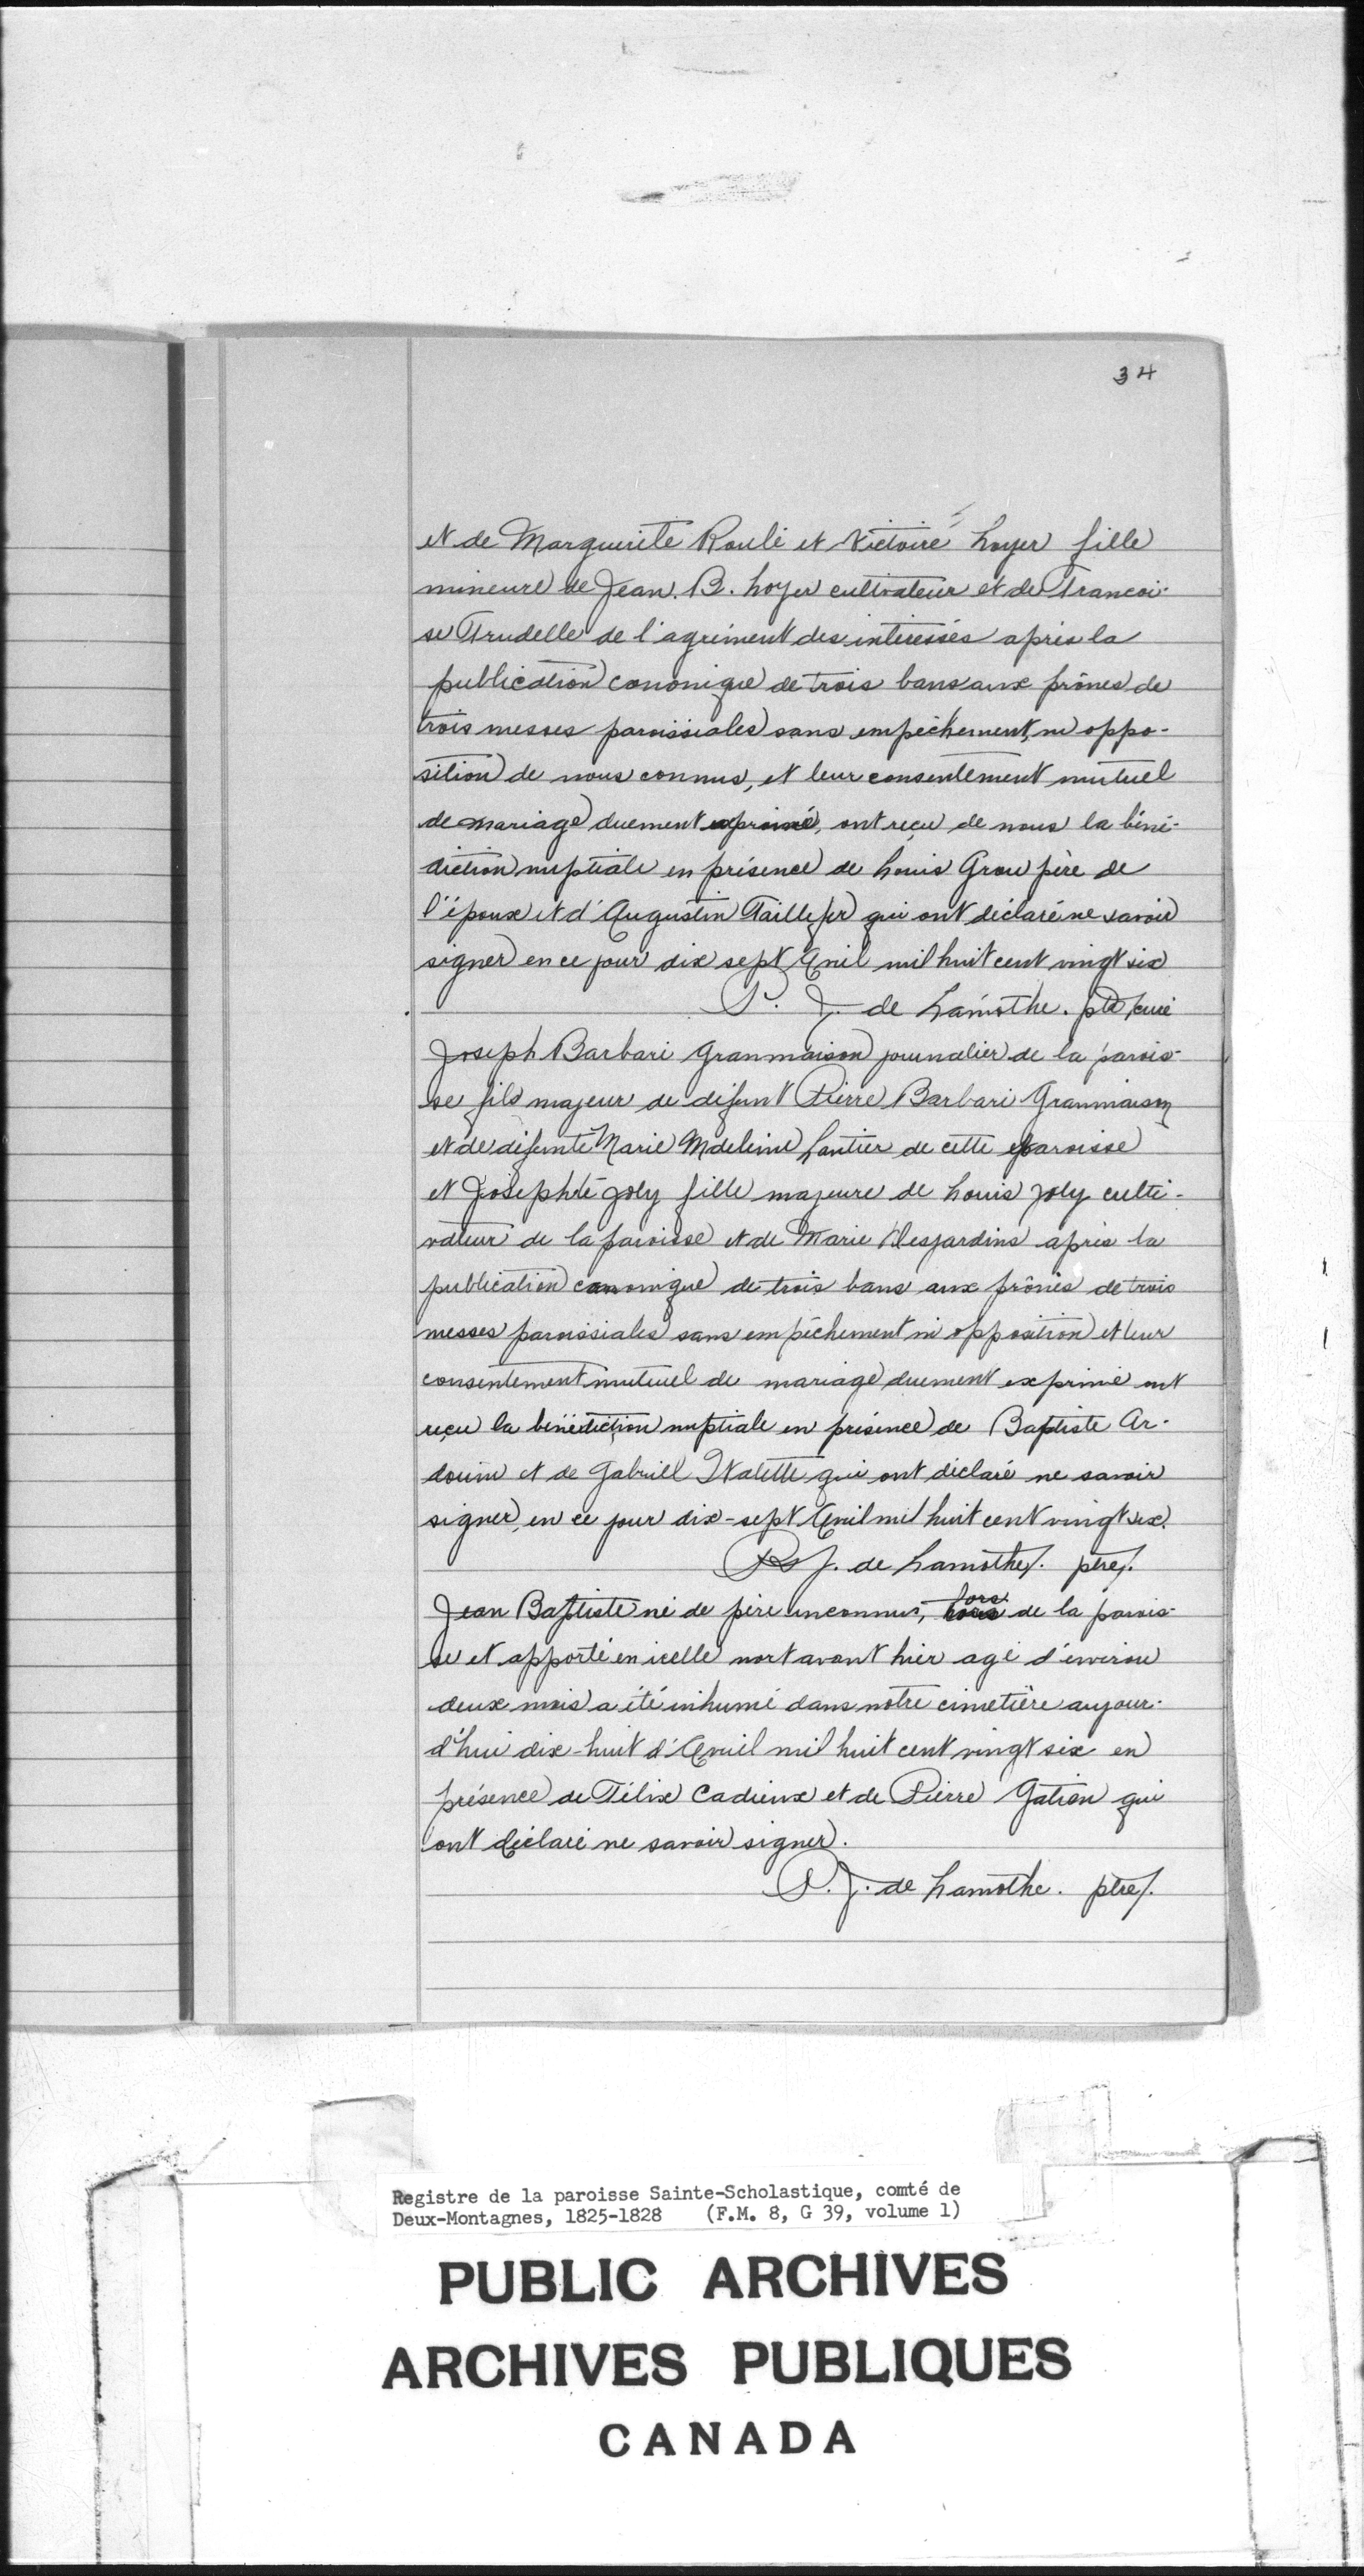 34
et de Marguerite Roulé et Victoire Loyer fille
mineure de Jean. B. Loyer cultivateur et de Francoi-
se Trudelle de l'agrément des intéressés après la
publication canonique de trois bans aux prônes de
trois messes paroissiales sans empêchement, ni oppo-
sition de nous connus, et leur consentement mutuel
de mariage duement exprimé, ont reçu de nous la béné-
diction nuptiale en présence de Louis Grou père de
l'époux et d'Augustin Taillefer qui ont déclaré ne savoir
signer en ce jour dix sept Avril mil huit cent vingt six
P. J. de Lamothe. ptre curé
Joseph Barbari Granmaison journalier de la parois-
se fils majeur de défunt Pierre Barbari Granmaison
et de défunte Marie Mdeleine Lantier de cette paroisse
et Josephte Joly fille majeure de Louis Joly culti-
vateur de la paroisse et de Marie Desjardins après la
publication canonique de trois bans aux prônes de trois
messes paroissiales sans empêchement ni opposition et leur
consentement mutuel de mariage duement exprimé ont
reçu la bénédiction nuptiale en présence de Baptiste Ar-
douin et de Gabriel Walette qui ont déclaré ne savoir
signer, en ce jour dix-sept Avril mil huit cent vingt six.
P. J. de Lamothe. ptre.
Jean Baptiste né de père inconnu, hors de la parois-
se et apporté en icelle mort avant hier agé d'environ
deux mois a été inhumé dans notre cimetière aujour-
d'hui dix-huit d'Avril mil huit cent vingt six en
présence de Félix Cadieux et de Pierre Gation qui
ont déclaré ne savoir signer.
P. J. de Lamothe. ptre.
Registre de la paroisse Sainte-Scholastique, comté de
Deux-Montagnes, 1825-1828 (F.M. 8, G 39, volume 1)
PUBLIC ARCHIVES
ARCHIVES PUBLIQUES
CANADA